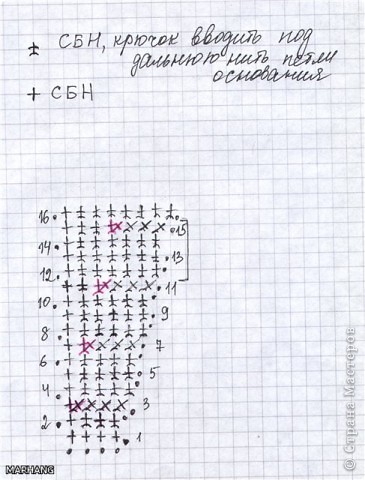 СБН, крючок вводить под
дальнюю нить петли
основания
+ СБН
16
15
14
13
12
11
10
9
8
7
6
5
4
3
2
1
© Страна Мастеров
MARHANG